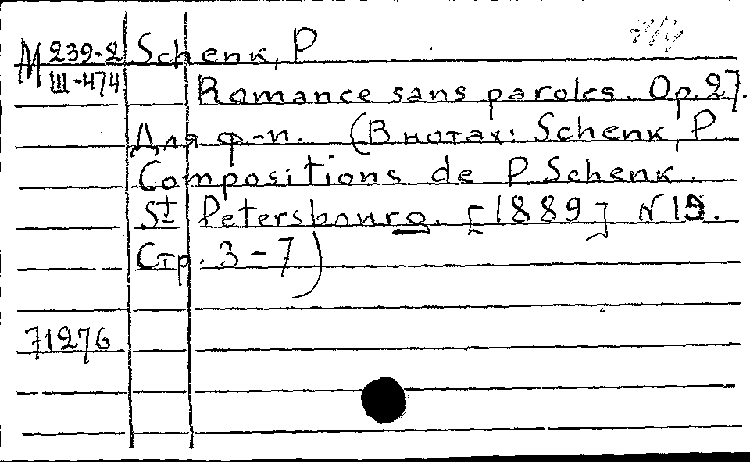 М 239-2 Schenk, P
III-474 Romance sans paroles. Op. 27.
Для ф-п. (В нотах: Schenk, P
Compositions de P Schenk.
St Petersbourg. [1889] N 19.
Стр. 3-7)
71276